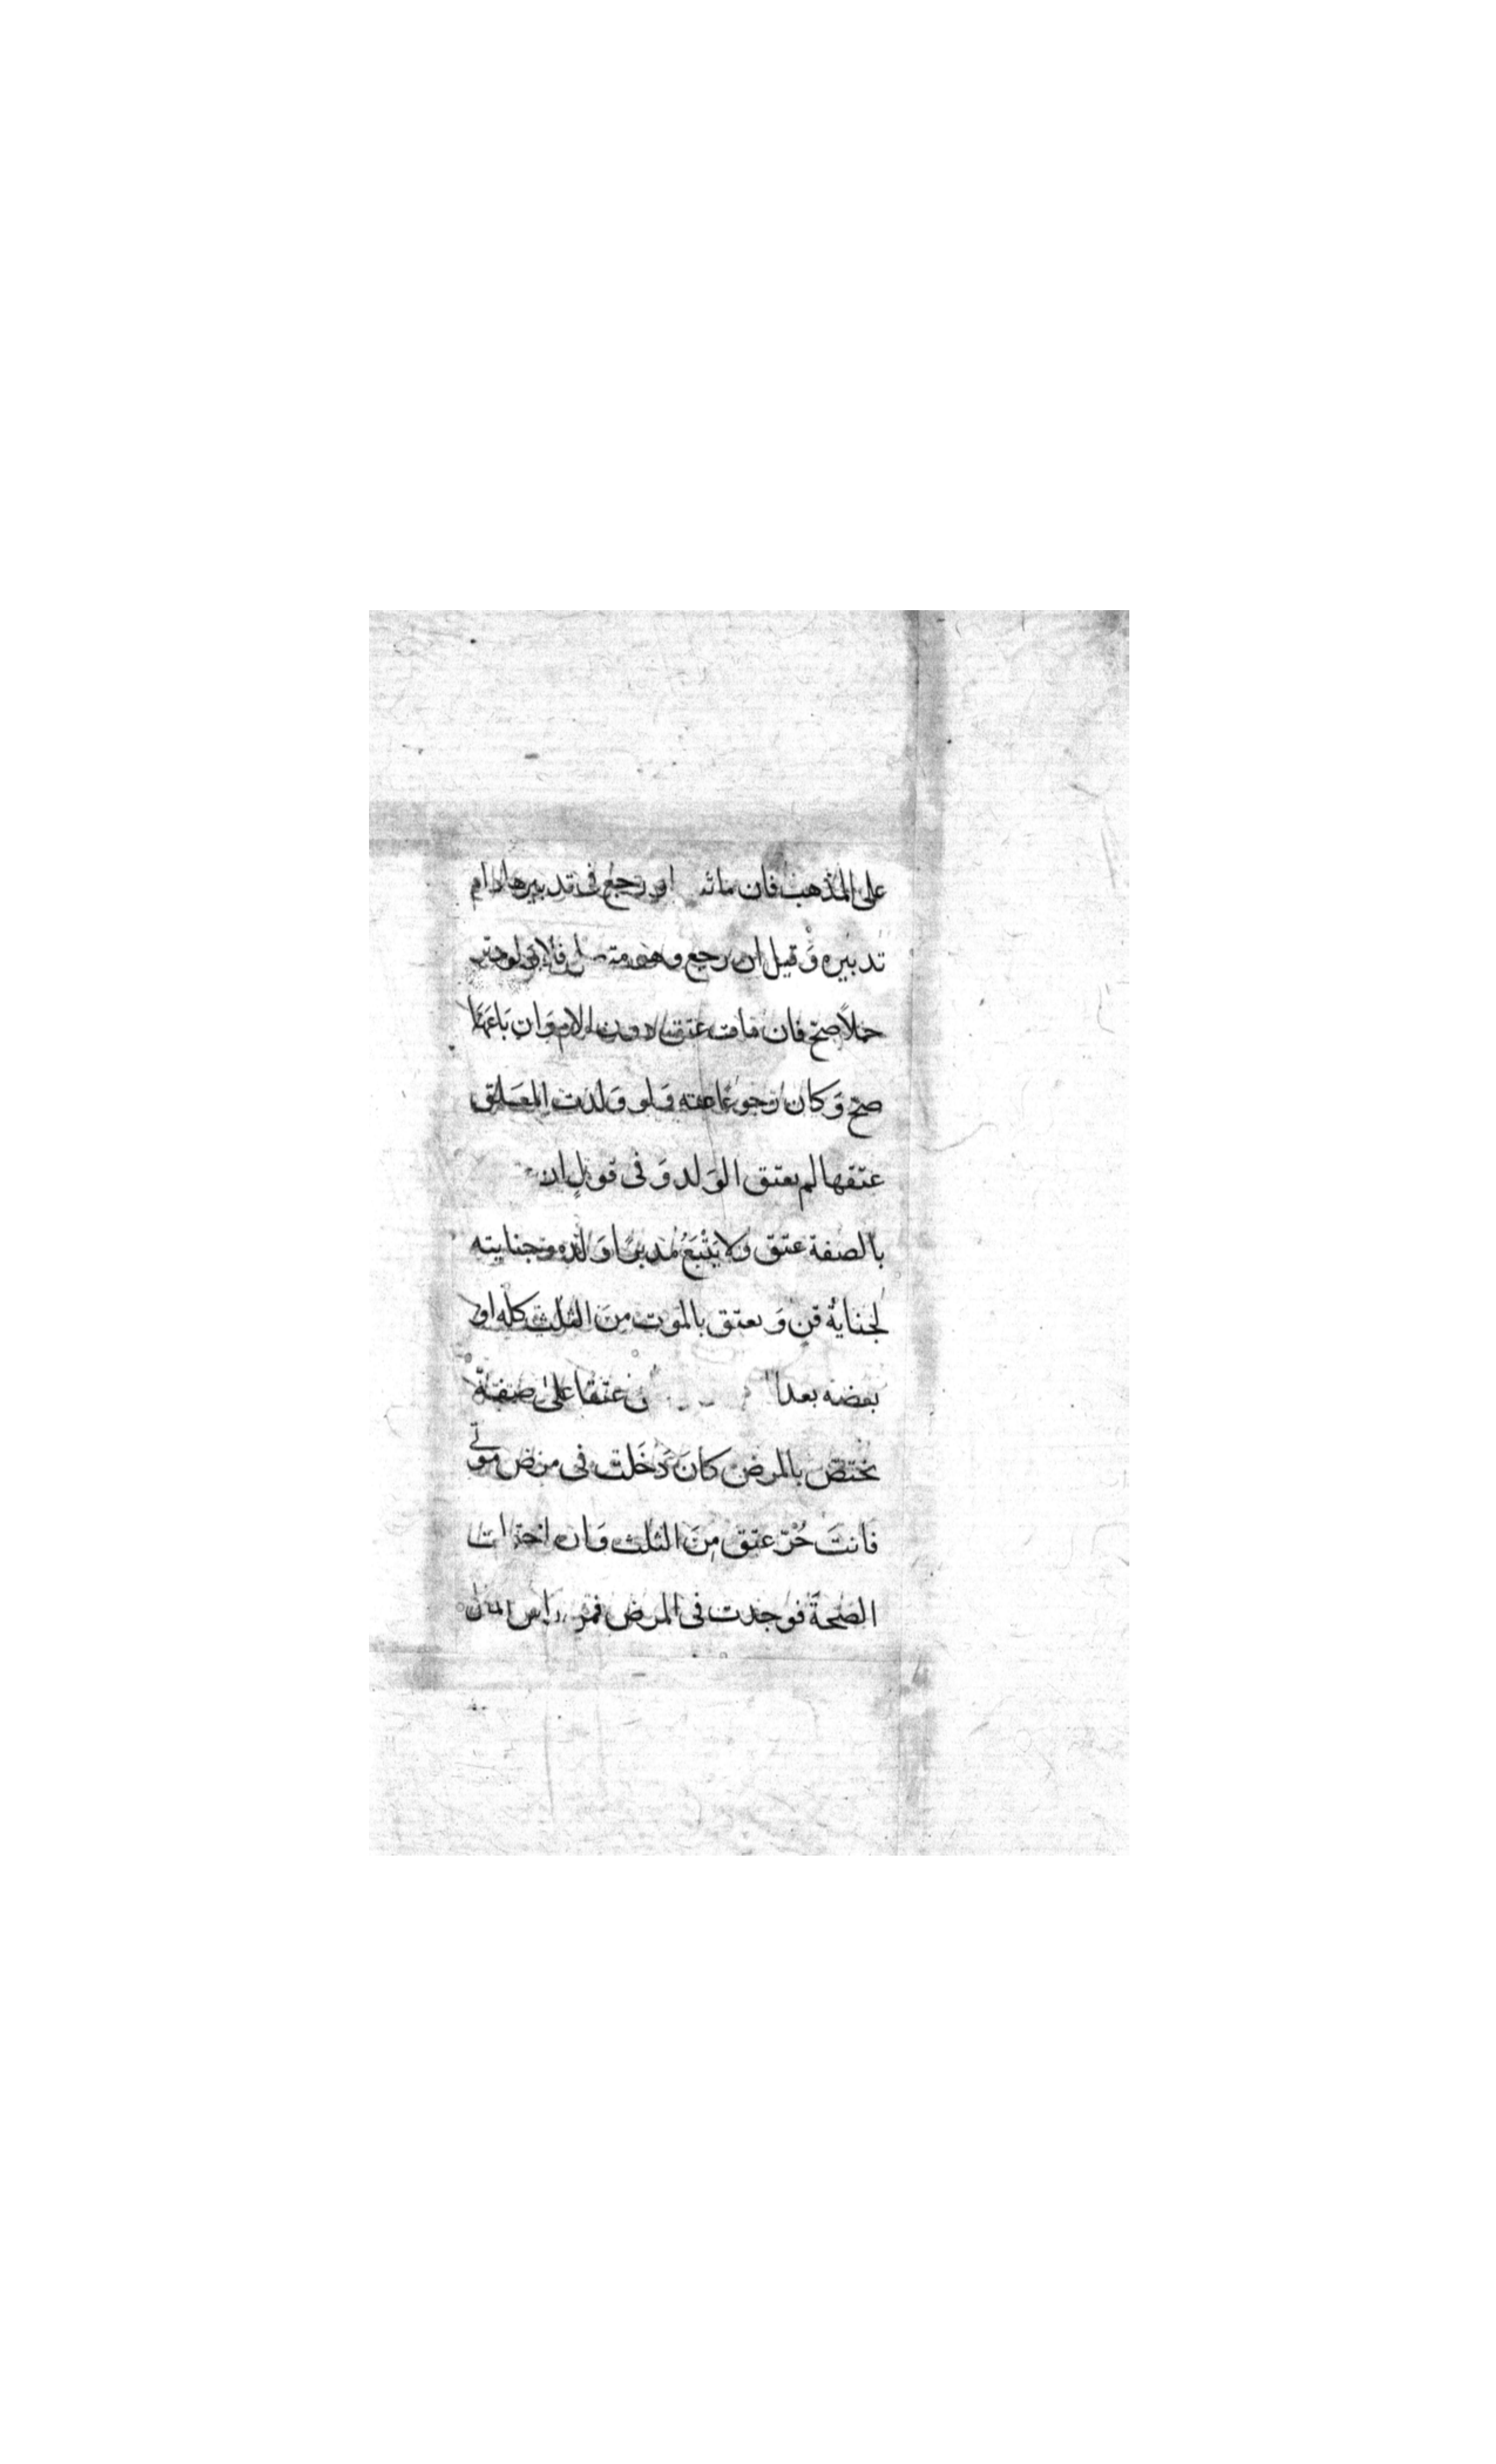 على المذهب فان ماتت او رجع في تدبيرها دام
تدبيره وقيل ان رجع وهو متصل فلا ولو دبر
حملاً صح فان مات عتق دون الام وان باعها
صح وكان رجوعا عنه ولو ولدت المعلق
عتقها لم يعتق الوَلد وَفى قولٍ ان
بالصفة عتق ولا يَتْبَعُ مُدبرًا وَلده وجنايته
كجنايةُ قنٍ وَيعتق بالموت منَ الثلث كله او
بعضه بعد عتقا على صفة
تختص بالمرض كان دَخَلت في مرض موتى
فانتَ حُرّ عتق مِنَ الثلث وَان احتملت
الصحةَ فوجدت في المرض فمن راس المال